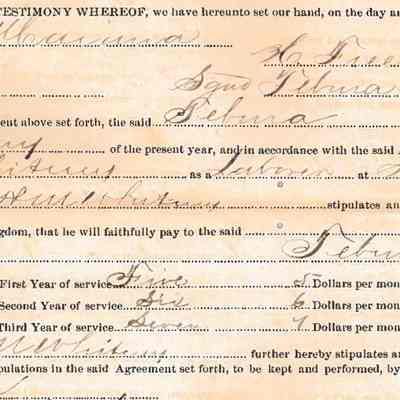 TESTIMONY WHEREOF, we have hereunto set our hand, on the day an
H. Free
Sgnd Tebura
ent above set forth, the said Tebura
of the present year, and in accordance with the said A
Whitney as a Laborer at
H M Whitney stipulates an
gdom, that he will faithfully pay to the said
Tebu
First Year of service Five 5 Dollars per mon
Second Year of service Six 6 Dollars per mon
Third Year of service Seven 7 Dollars per mon
M Whitney further hereby stipulates a
pulations in the said Agreement set forth, to be kept and performed, by